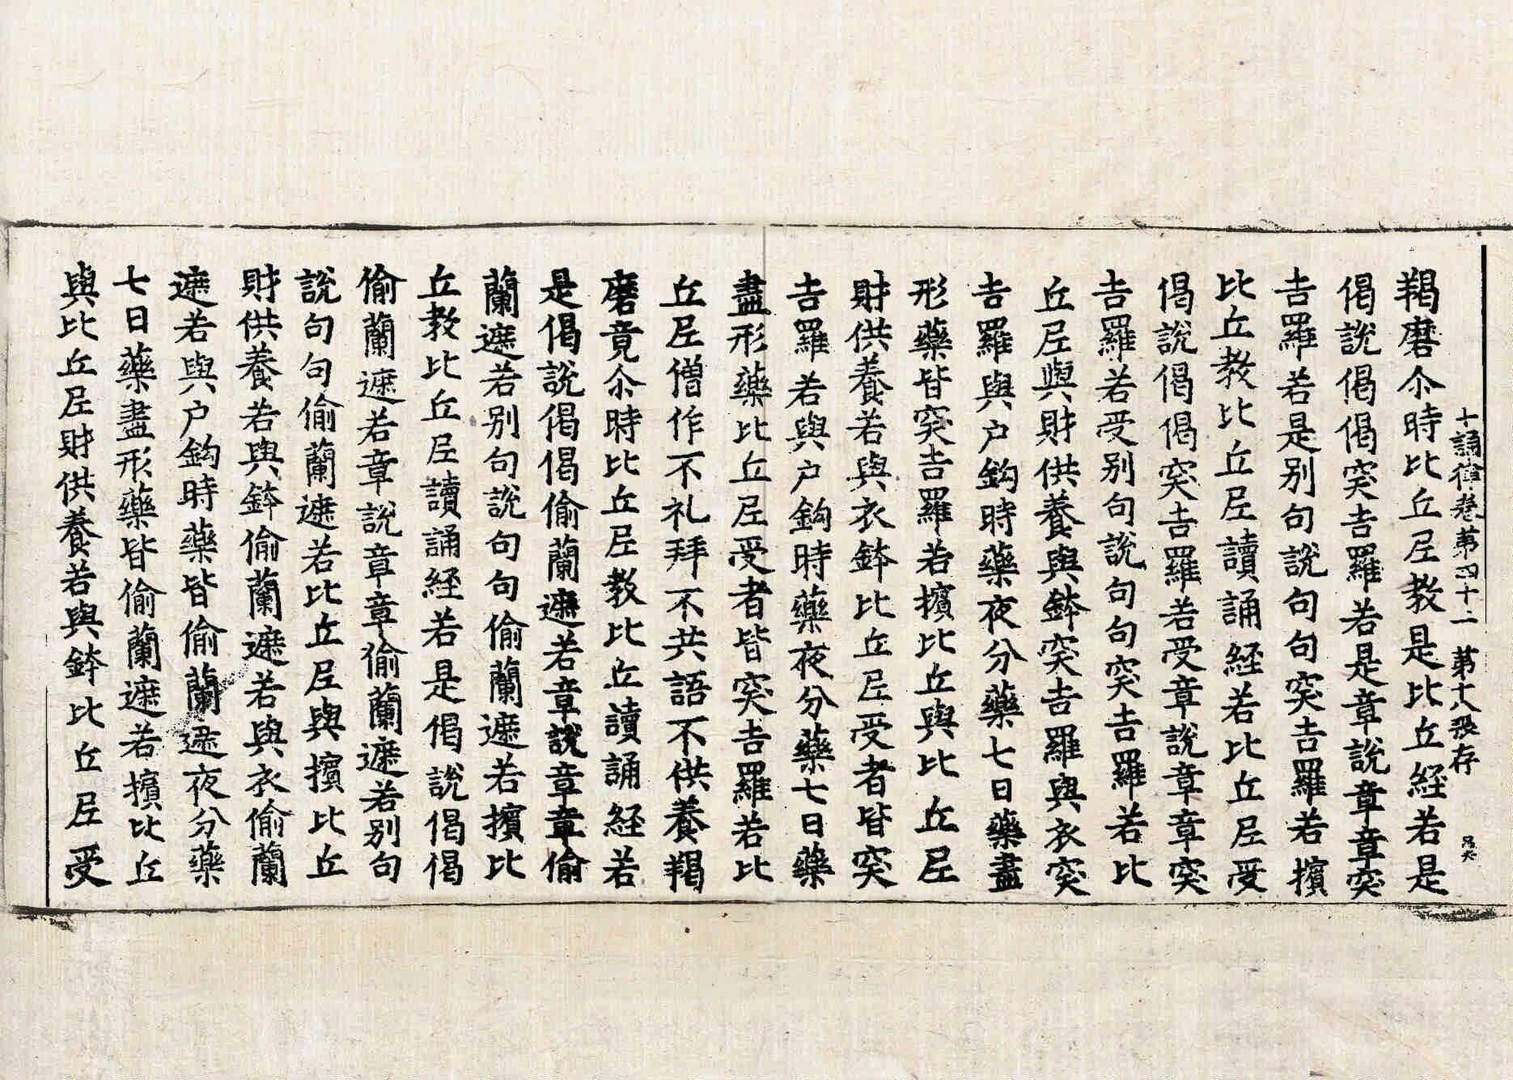 十誦律卷第四十二　第十八張存
羯磨尒時比丘尼教是比丘經若是
偈說偈偈突吉羅若是章說章章突
吉羅若是別句說句句突吉羅若擯
比丘教比丘尼讀誦經若比丘尼受
偈說偈偈突吉羅若受章說章章突
吉羅若受別句說句句突吉羅若比
丘尼與財供養與鉢突吉羅與衣突
吉羅與户鈎時藥夜分藥七日藥盡
形藥皆突吉羅若擯比丘與比丘尼
財供養若與衣鉢比丘尼受者皆突
吉羅若與户鈎時藥夜分藥七日藥
盡形藥比丘尼受者皆突吉羅若比
丘尼僧作不礼拜不共語不供養羯
磨竟尒時比丘尼教比丘讀誦經若
是偈說偈偈偷蘭遮若章說章章偷
蘭遮若別句說句句偷蘭遮若擯比
丘教比丘尼讀誦經若是偈說偈偈
偷蘭遮若章說章章偷蘭遮若別句
說句句偷蘭遮若比丘尼與擯比丘
財供養若與鉢偷蘭遮若與衣偷蘭
遮若與户鈎時藥皆偷蘭遮夜分藥
七日藥盡形藥皆偷蘭遮若擯比丘
與比丘尼財供養若與鉢比丘尼受